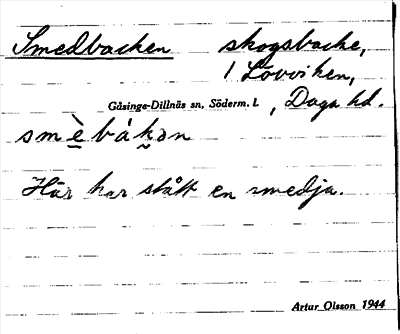 Smedbacken skogsbacke,
i Lövviken,
Gåsinge-Dillnäs sn, Söderm. l., Daga hd.
smèbákən
Här har stått en smedja.
Artur Olsson 1944